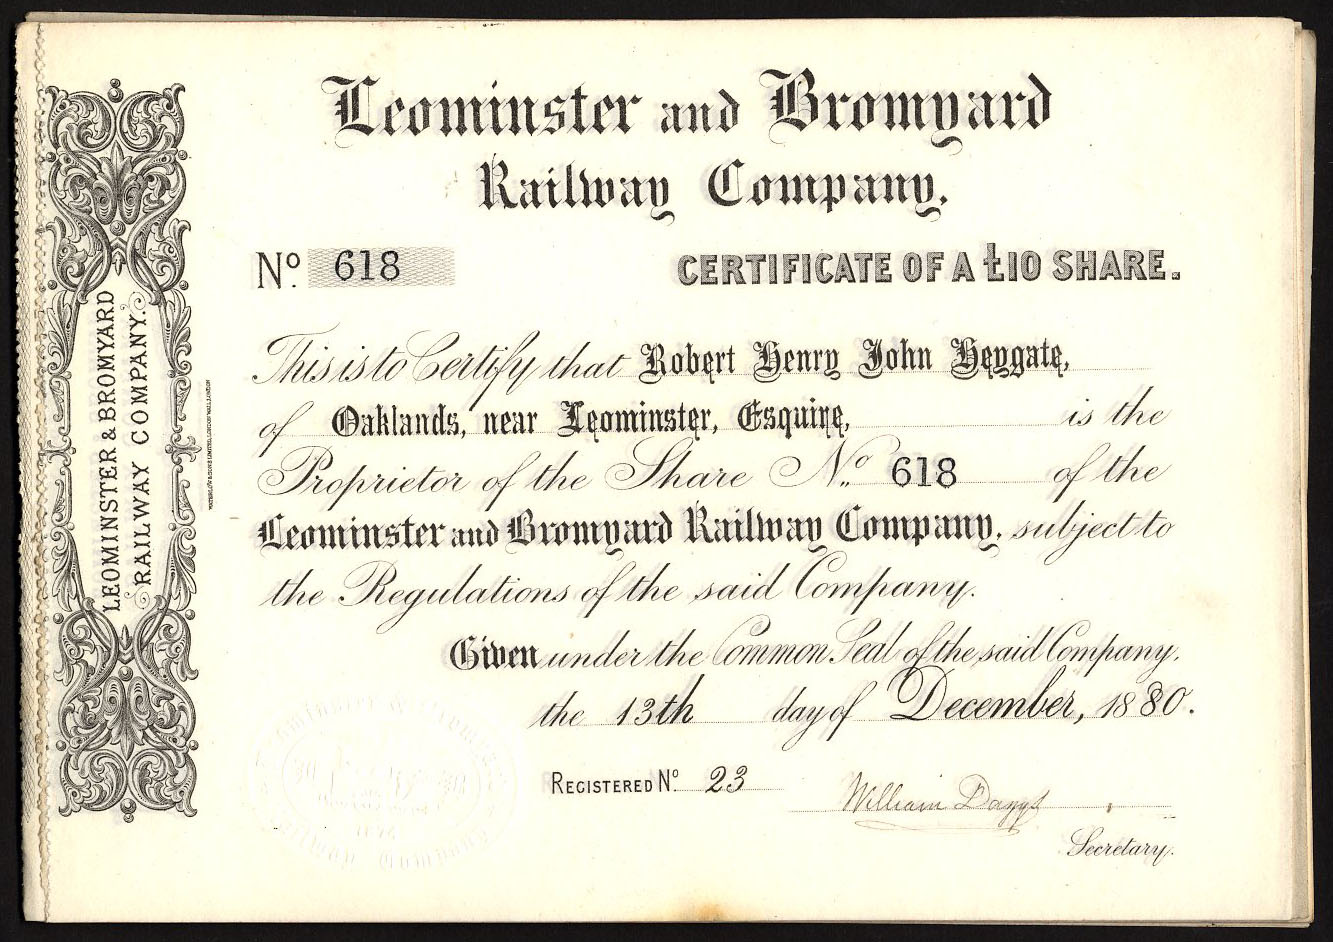 Leominster and Bromyard
Railway Company.
No. 618
CERTIFICATE OF A £10 SHARE.
This is to Certify that Robert Henry John Heygate,
of Oaklands, near Leominster, Esquire, is the
Proprietor of the Share No. 618 of the
Leominster and Bromyard Railway Company, subject to
the Regulations of the said Company.
Given under the Common Seal of the said Company.
the 13th day of December, 1880.
REGISTERED No. 23
William
Secretary.
LEOMINSTER & BROMYARD
RAILWAY COMPANY.
WATERLOW & SONS LIMITED, LONDON WALL, LONDON